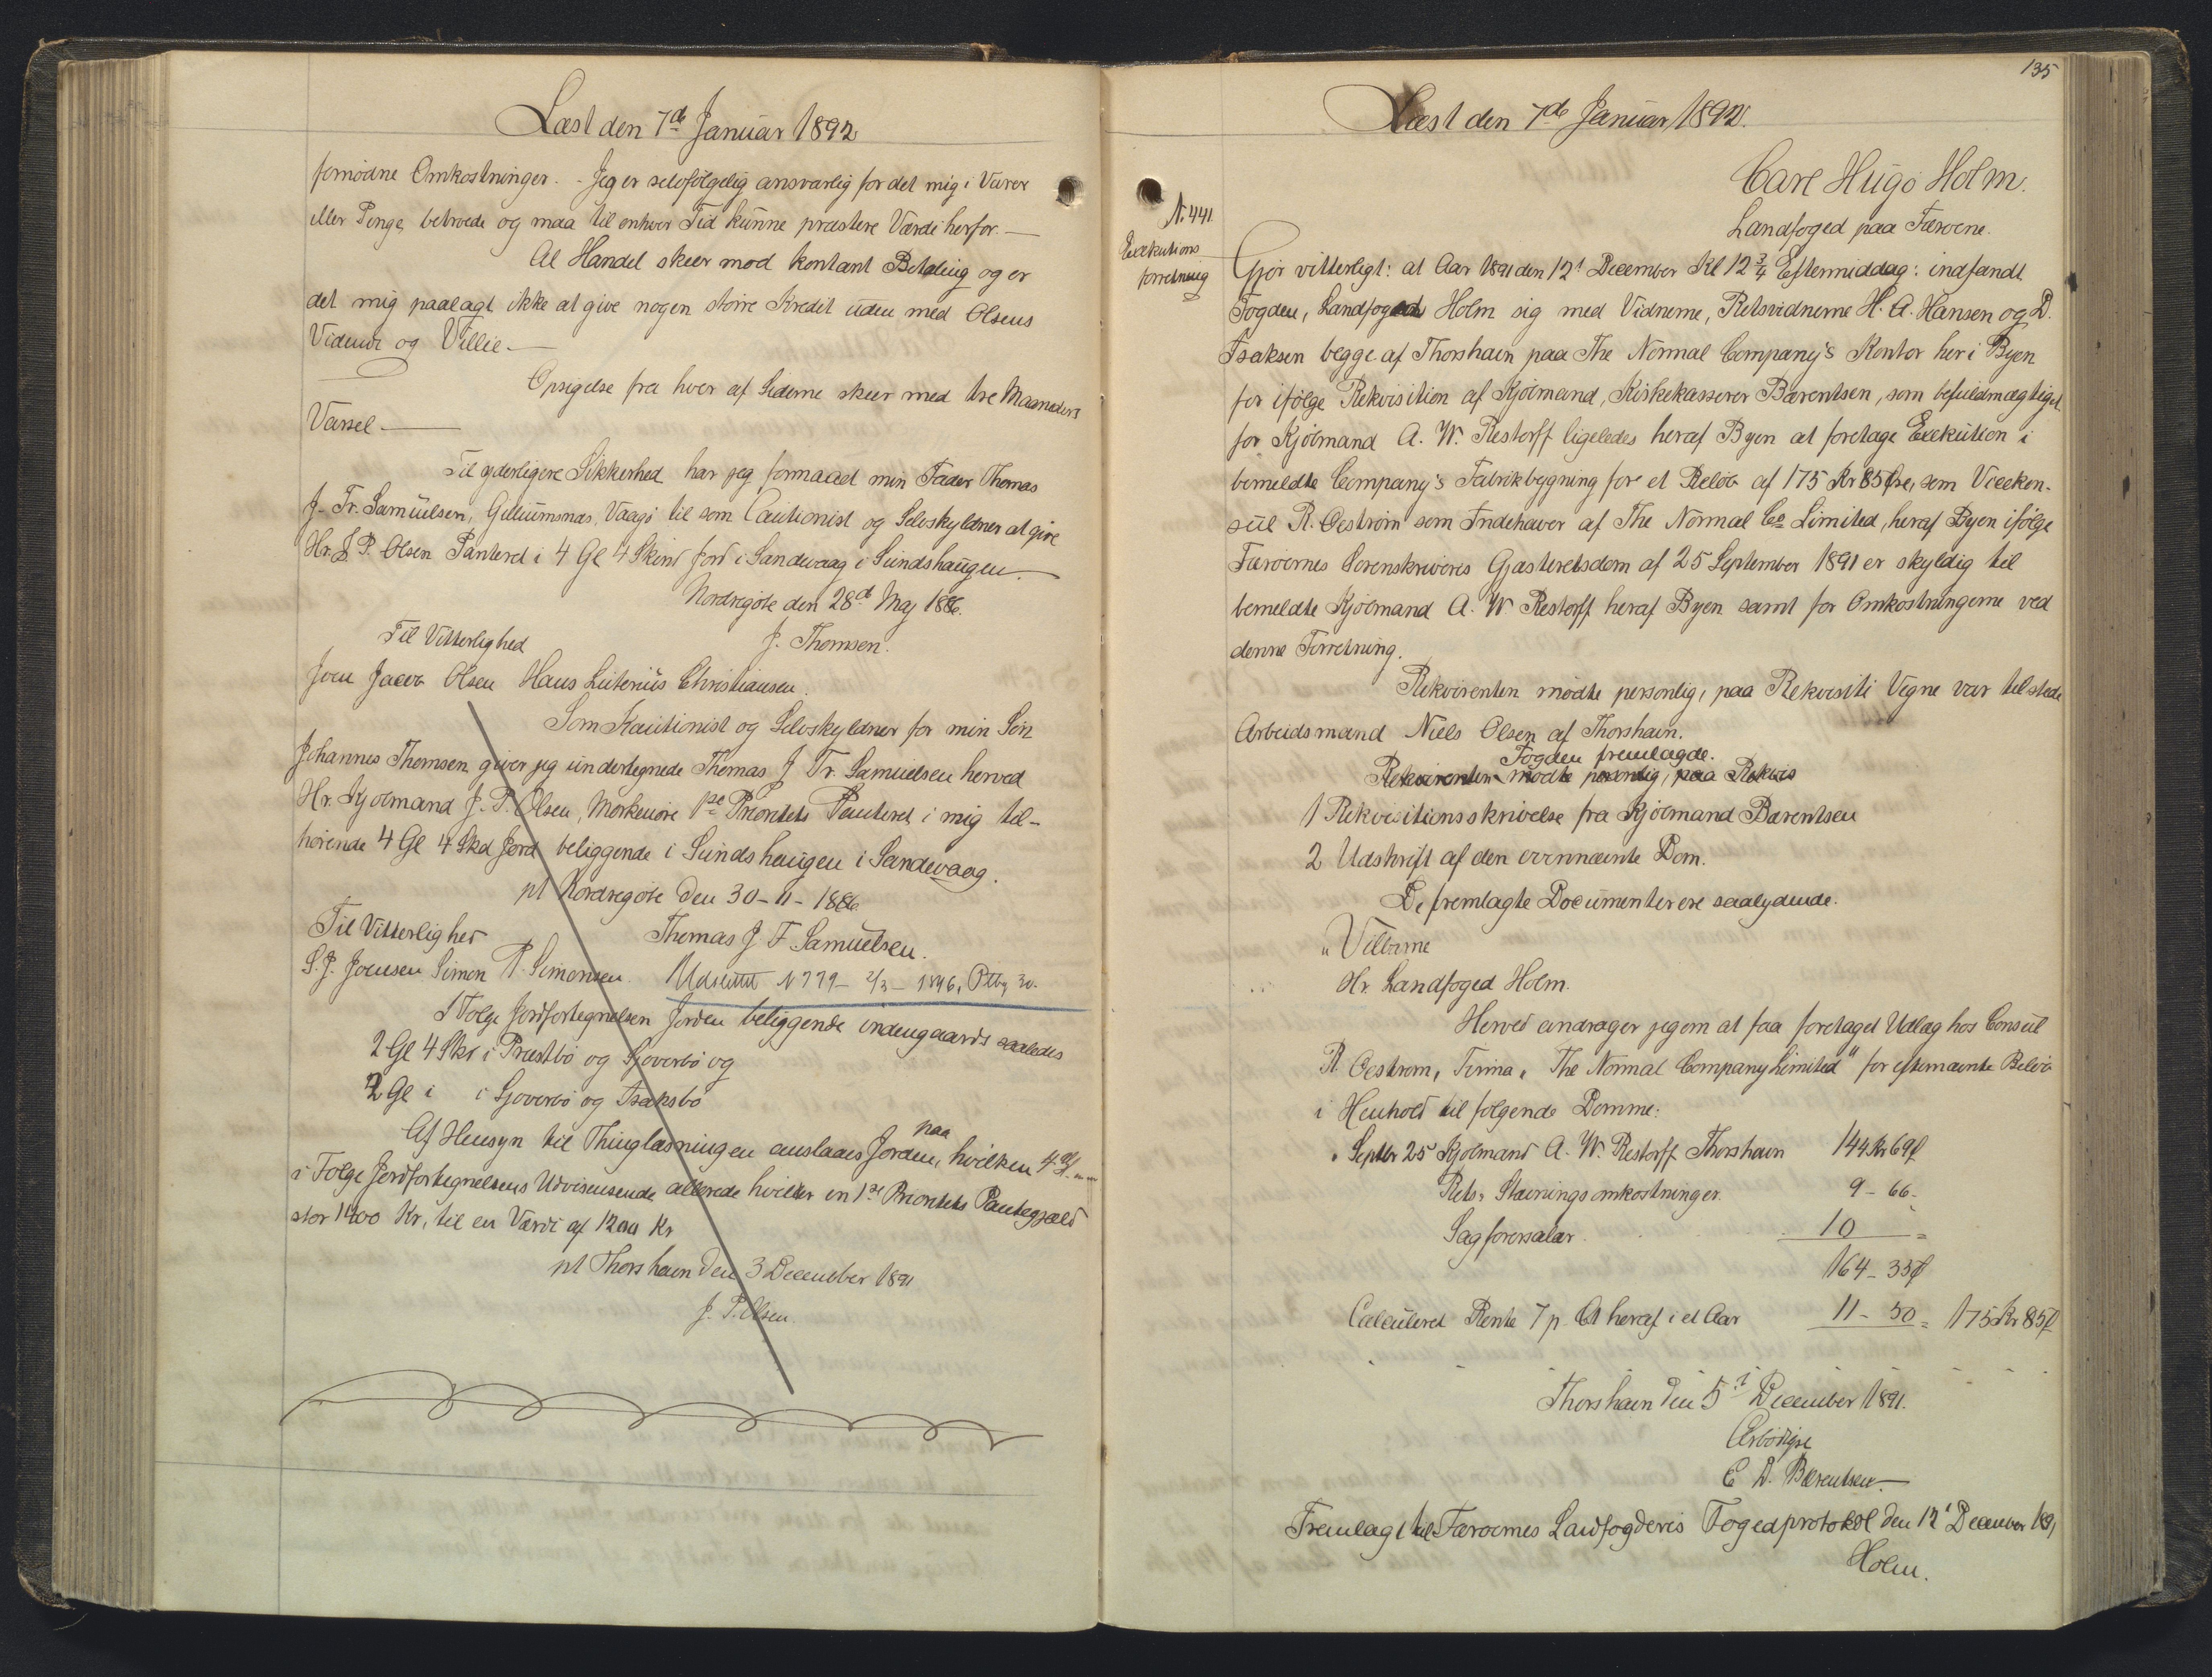 Læst den 7de Januar 1892
fornødne Omkostninger. - Jeg er selvfølgelig ansvarlig for det mig i Varer
eller Penge betroede og maa til enhver Tid kunne præstere Værdi herfor. —
Al Handel skeer mod kontant Betaling og er
det mig paalagt ikke at give nogen større Kredit uden med Olsens
Vidende og Villie —
Opsigelse fra hver af Siderne skeer med tre Maaneders
Varsel —
Til yderligere Sikkerhed har jeg formaaet min Fader Thomas
J. Fr. Samuelsen, Vaagø til som Cautionist og Selvskyldner at give
Hr. J. P. Olsen Panteret i 4 Gl 4 Skind Jord i Sandevaag i Sundshaugen. —
Nordregøte den 28de Maj 1886.
Til Vitterlighed
J. Thomsen.
Joen Jacob Olsen Hans Luterius Christiansen.
Som Kautionist og Selvskyldner for min Søn
Johannes Thomsen giver jeg undertegnede Thomas J. Fr. Samuelsen herved
Hr. Kjøbmand J. P. Olsen, Morkenøre 1ste Prioritets Panteret i mig til-
hørende 4 Gl 4 Skd Jord beliggende i Sundshaugen i Sandevaag.
pt Nordregøte den 30-11-1886
Til Vitterlighed
Thomas J. F Samuelsen.
S. J. Joensen Simon P. Simonsen. Udslettet N 779 - 2/3 - 1896, Ptbg 30.
I Følge Jordfortegnelsen Jorden beliggende indengaards saaledes
2 Gl 4 Skd i Præstbø og Sjoverbø og
2 Gl i i Sjoverbø og Isaksbø
Af Hensyn til Thinglæsningen anslaaes Jorden, paa hvilken
i Følge Jordfortegnelsens Udvisensende allerede hviler en 1ste Prioritets Pantegjæld
stor 1400 Kr, til en Værdi af 1200 Kr
pt Thorshavn den 3 December 1891
J. P. Olsen.
135
Læst den 7de Januar 1892.
Carl Hugo Holm.
Landfoged paa Færøerne.
N. 441
Exekutions
forretning
Gjør vitterligt: at Aar 1891 den 12t December Kl 12 3/4 Eftermiddag: indfandt
Fogden, Landfoged Holm sig med Vidnerne, Retsvidnerne H. A. Hansen og D.
Isaksen begge af Thorshavn paa The Normal Company's Kontor her i Byen
for ifølge Rekvisition af Kjøbmand, Kirkekasserer Bærentsen, som befuldmægtiget
for Kjøbmand A. W. Restorff ligeledes heraf Byen at foretage Exekution i
bemeldte Company's Fabrikbygning for et Beløb af 175 Kr 85 Øre, som Vicekon-
sul R. Oestrøm som Indehaver af The Normal Co Limited, heraf Byen ifølge
Færøernes Sorenskriveris Gjæsteretsdom af 25 September 1891 er skyldig til
bemeldte Kjøbmand A. W Restorff heraf Byen samt for Omkostningerne ved
denne Forretning.
Rekvirenten mødte personlig, paa Rekvisiti Vegne var tilstede
Arbeidsmand Niels Olsen af Thorshavn.
Fogden fremlagde.
Rekvirenten mødte personlig, paa Rekvis
1 Rekvisitionsskrivelse fra Kjøbmand Bærentsen
2 Udskrift af den ovennævnte Dom.
De fremlagte Documenter ere saalydende.
"Velbrne
Hr. Landfoged Holm.
Herved andrager jeg om at faa foretaget Udlæg hos Consul
R. Oestrøm, Firma, "The Normal Company Limited" for efternævnte Beløb
i Henhold til følgende Domme:
Septbr 25 Kjøbmand A. W. Restorff Thorshavn 144 Kr 69 Ø
Rets & Stævningsomkostninger. 9 - 66 -
Sagførersalær. 10 =
164 - 35 Ø
Calculeret Rente 7 p. Ct heraf i et Aar 11 - 50 = 175 Kr 85 Ø
Thorshavn den 5t December 1891.
Ærbødigst
E D. Bærentsen. —
Fremlagt til Færøernes Landfogderis Fogedprotokol den 12t December 1891
Holm.